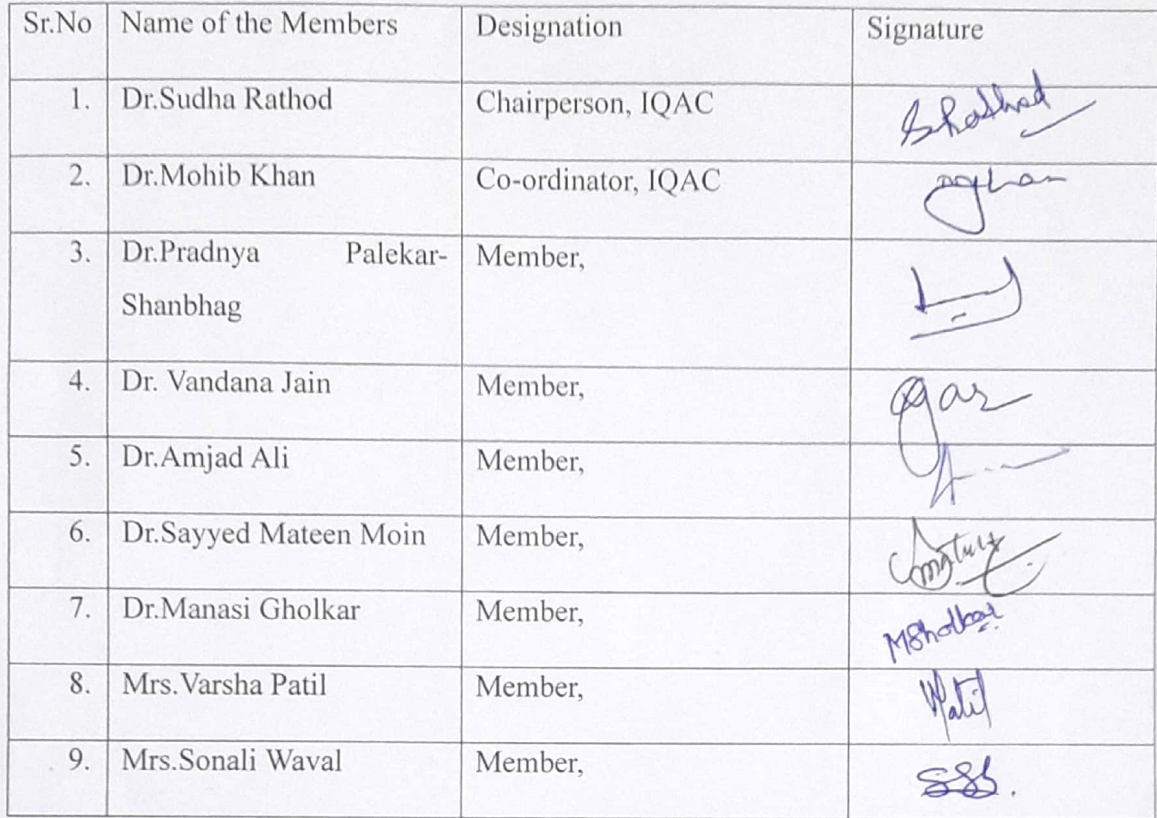 Sr.No Name of the Members Designation Signature
1. Dr.Sudha Rathod Chairperson, IQAC SRathod
2. Dr.Mohib Khan Co-ordinator, IQAC
3. Dr.Pradnya Palekar- Member,
Shanbhag
4. Dr. Vandana Jain Member,
5. Dr.Amjad Ali Member,
6. Dr.Sayyed Mateen Moin Member,
7. Dr.Manasi Gholkar Member, MGholkar
8. Mrs.Varsha Patil Member, VPatil
9. Mrs.Sonali Waval Member,